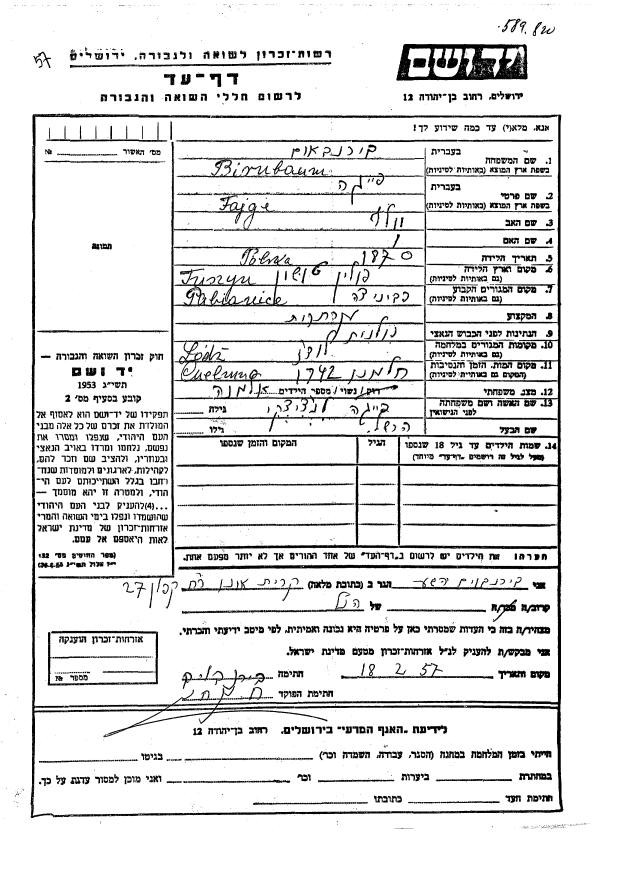 589.820
57
יד ושם
רשות-זכרון לשואה ולגבורה, ירושלים
דף-עד
לרשום חללי השואה והגבורה
ירושלים, רחוב בן-יהודה 12
אנא, מלא(י) עד כמה שידוע לך!
מס' האשור
№
תמונה
1. שם המשפחה
בעברית
בירנבאום
בשפת ארץ המוצא (באותיות לטיניות)
Birnbaum
2. שם פרטי
בעברית
פייגה
בשפת ארץ המוצא (באותיות לטיניות)
Fajge
3. שם האב
וולף
4. שם האם
5. תאריך הלידה
1870
6. מקום וארץ הלידה
(גם באותיות לטיניות)
פולין טושין
Polska
Tuszyn
7. מקום המגורים הקבוע
(גם באותיות לטיניות)
פביניצה
Pabianice
8. המקצוע
9. הנתינות לפני הכבוש הנאצי
פולנית
10. מקומות המגורים במלחמה
(גם באותיות לטיניות)
לודז'
Łódź
11. מקום המות, הזמן והנסיבות
(המקום גם באותיות לטיניות)
חלמנו 1942
12. מצב משפחתי
רווק/נשוי/מספר הילדים
אלמנה
13. שם האשה ושם משפחתה
לפני הנישואין
גילה
שם הבעל
הרשל
גילו
חוק זכרון השואה והגבורה —
יד ושם
תשי"ג 1953
קובע בסעיף מס' 2
תפקידו של יד-ושם הוא לאסוף אל
המולדת את זכרם של כל אלה מבני
העם היהודי, שנפלו ומסרו את
נפשם, נלחמו ומרדו באויב הנאצי
ובעוזריו, ולהציב שם וזכר להם,
לקהילות, לארגונים ולמוסדות שנח-
רבו בגלל השתייכותם לעם הי-
הודי, ולמטרה זו יהא מוסמך —
...(4)להעניק לבני העם היהודי
שהושמדו ונפלו בימי השואה והמרי
אזרחות-זכרון של מדינת ישראל
לאות היאספם אל עמם.
(ספר החוקים מס' 132
14. שמות הילדים עד גיל 18 שנספו
(מעל לגיל זה רושמים "דף-עד" מיוחד)
הגיל
המקום והזמן שנספו
הערה: את הילדים יש לרשום ב"דף-העד" של אחד ההורים אך לא יותר מפעם אחת.
אני בירנבוים
הגר ב (כתובת מלאה) קרית אונו רח קפלן 27
קרוב/ה
של הנ"ל
מצהיר/ה בזה כי העדות שמסרתי כאן על פרטיה היא נכונה ואמיתית, לפי מיטב ידיעתי והכרתי.
אני מבקש/ת להעניק לנ"ל אזרחות-זכרון מטעם מדינת ישראל.
מקום ותאריך
18 2 57
חתימה
חתימת הפוקד
אזרחות-זכרון הוענקה
מספר №
לידיעת "האגף המדעי" בירושלים, רחוב בן-יהודה 12
הייתי בזמן המלחמה במחנה (הסגר, עבודה, השמדה וכו')
בגיטו
במחתרת
ביערות
וכו'
ואני מוכן למסור עדות על כך.
חתימת העד
כתובתו